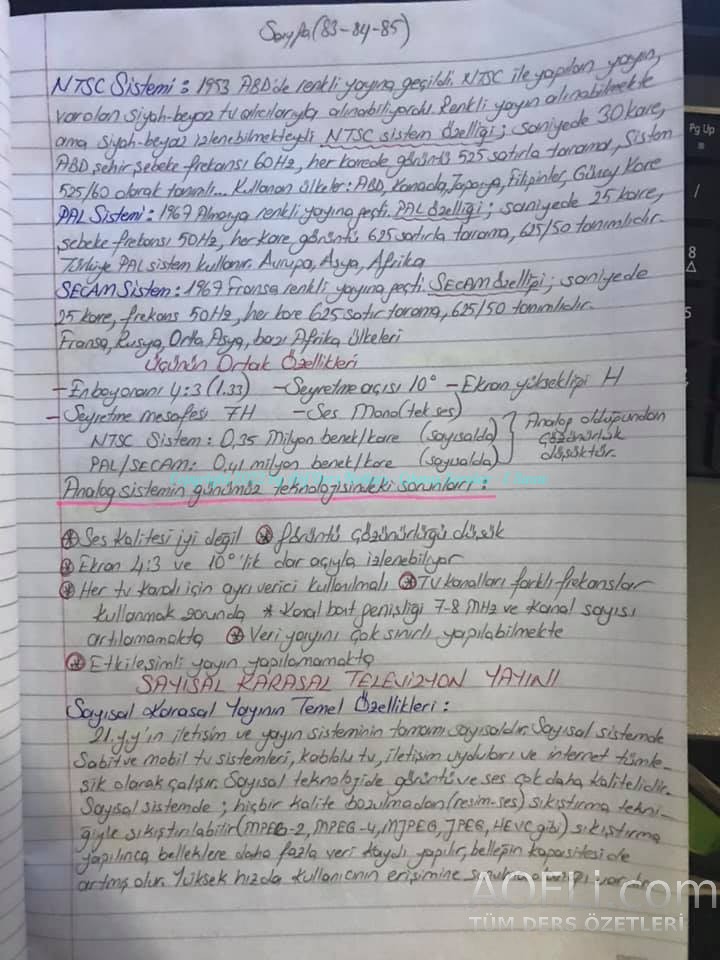 Sayfa (83-84-85)
NTSC Sistemi: 1953 ABD'de renkli yayına geçildi. NTSC ile yapılan yayın,
varolan siyah-beyaz tv alıcılarıyla alınabiliyordu. Renkli yayın alınabilmekte
ama siyah-beyaz izlenebilmekteydi. NTSC sistem özelliği; saniyede 30 kare,
ABD şehir şebeke frekansı 60Hz, her karede görüntü 525 satırla taramalı, Sistem
525/60 olarak tanımlı.. Kullanan ülkeler: ABD, Kanada, Japonya, Filipinler, Güney Kore
PAL Sistemi: 1967 Almanya renkli yayına geçti. PAL özelliği; saniyede 25 kare,
şebeke frekansı 50Hz, her kare görüntü 625 satırla tarama, 625/50 tanımlıdır.
Türkiye PAL sistem kullanır. Avrupa, Asya, Afrika
SECAM Sistem: 1967 Fransa renkli yayına geçti. SECAM özelliği; saniyede
25 kare, frekans 50Hz, her kare 625 satır tarama, 625/50 tanımlıdır.
Fransa, Rusya, Orta Asya, bazı Afrika ülkeleri
Üçünün Ortak Özellikleri
- En boy oranı 4:3 (1.33) - Seyretme açısı 10° - Ekran yüksekliği H
- Seyretme mesafesi 7H - Ses Mono (tek ses)
NTSC Sistem: 0,35 Milyon benek/kare (sayısalda)
PAL/SECAM: 0,41 milyon benek/kare (sayısalda)
Analog olduğundan
çözünürlük
düşüktür.
Analog sistemin günümüz teknolojisindeki sorunları:
* Ses kalitesi iyi değil * Görüntü çözünürlüğü düşük
* Ekran 4:3 ve 10°'lik dar açıyla izlenebiliyor
* Her tv kanalı için ayrı verici kullanılmalı * TV kanalları farklı frekanslar
kullanmak zorunda * Kanal bant genişliği 7-8 MHz ve kanal sayısı
artılamamakta * Veri yayını çok sınırlı yapılabilmekte
* Etkileşimli yayın yapılamamakta
SAYISAL KARASAL TELEVİZYON YAYINI
Sayısal Karasal Yayının Temel Özellikleri:
21.yy'ın iletişim ve yayın sisteminin tamamı sayısaldır. Sayısal sistemde
Sabit ve mobil tv sistemleri, kablolu tv, iletişim uyduları ve internet tümle-
şik olarak çalışır. Sayısal teknolojide görüntü ve ses çok daha kalitelidir.
Sayısal sistemde; hiçbir kalite bozulmadan (resim-ses) sıkıştırma tekni-
ğiyle sıkıştırılabilir (MPEG-2, MPEG-4, MJPEG, JPEG, HEVC gibi) sıkıştırma
yapılınca belleklere daha fazla veri kaydı yapılır, belleğin kapasitesi de
artmış olur. Yüksek hızda kullanıcının erişimine
AOFLi.com
TÜM DERS ÖZETLERİ
Pg Up
/
8
5